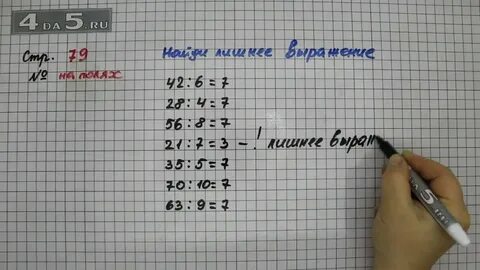 4DA5.RU
Стр. 79
№ на полях
Найди лишнее выражение
42 : 6 = 7
28 : 4 = 7
56 : 8 = 7
21 : 7 = 3 - ! лишнее выраж
35 : 5 = 7
70 : 10 = 7
63 : 9 = 7
4DA5